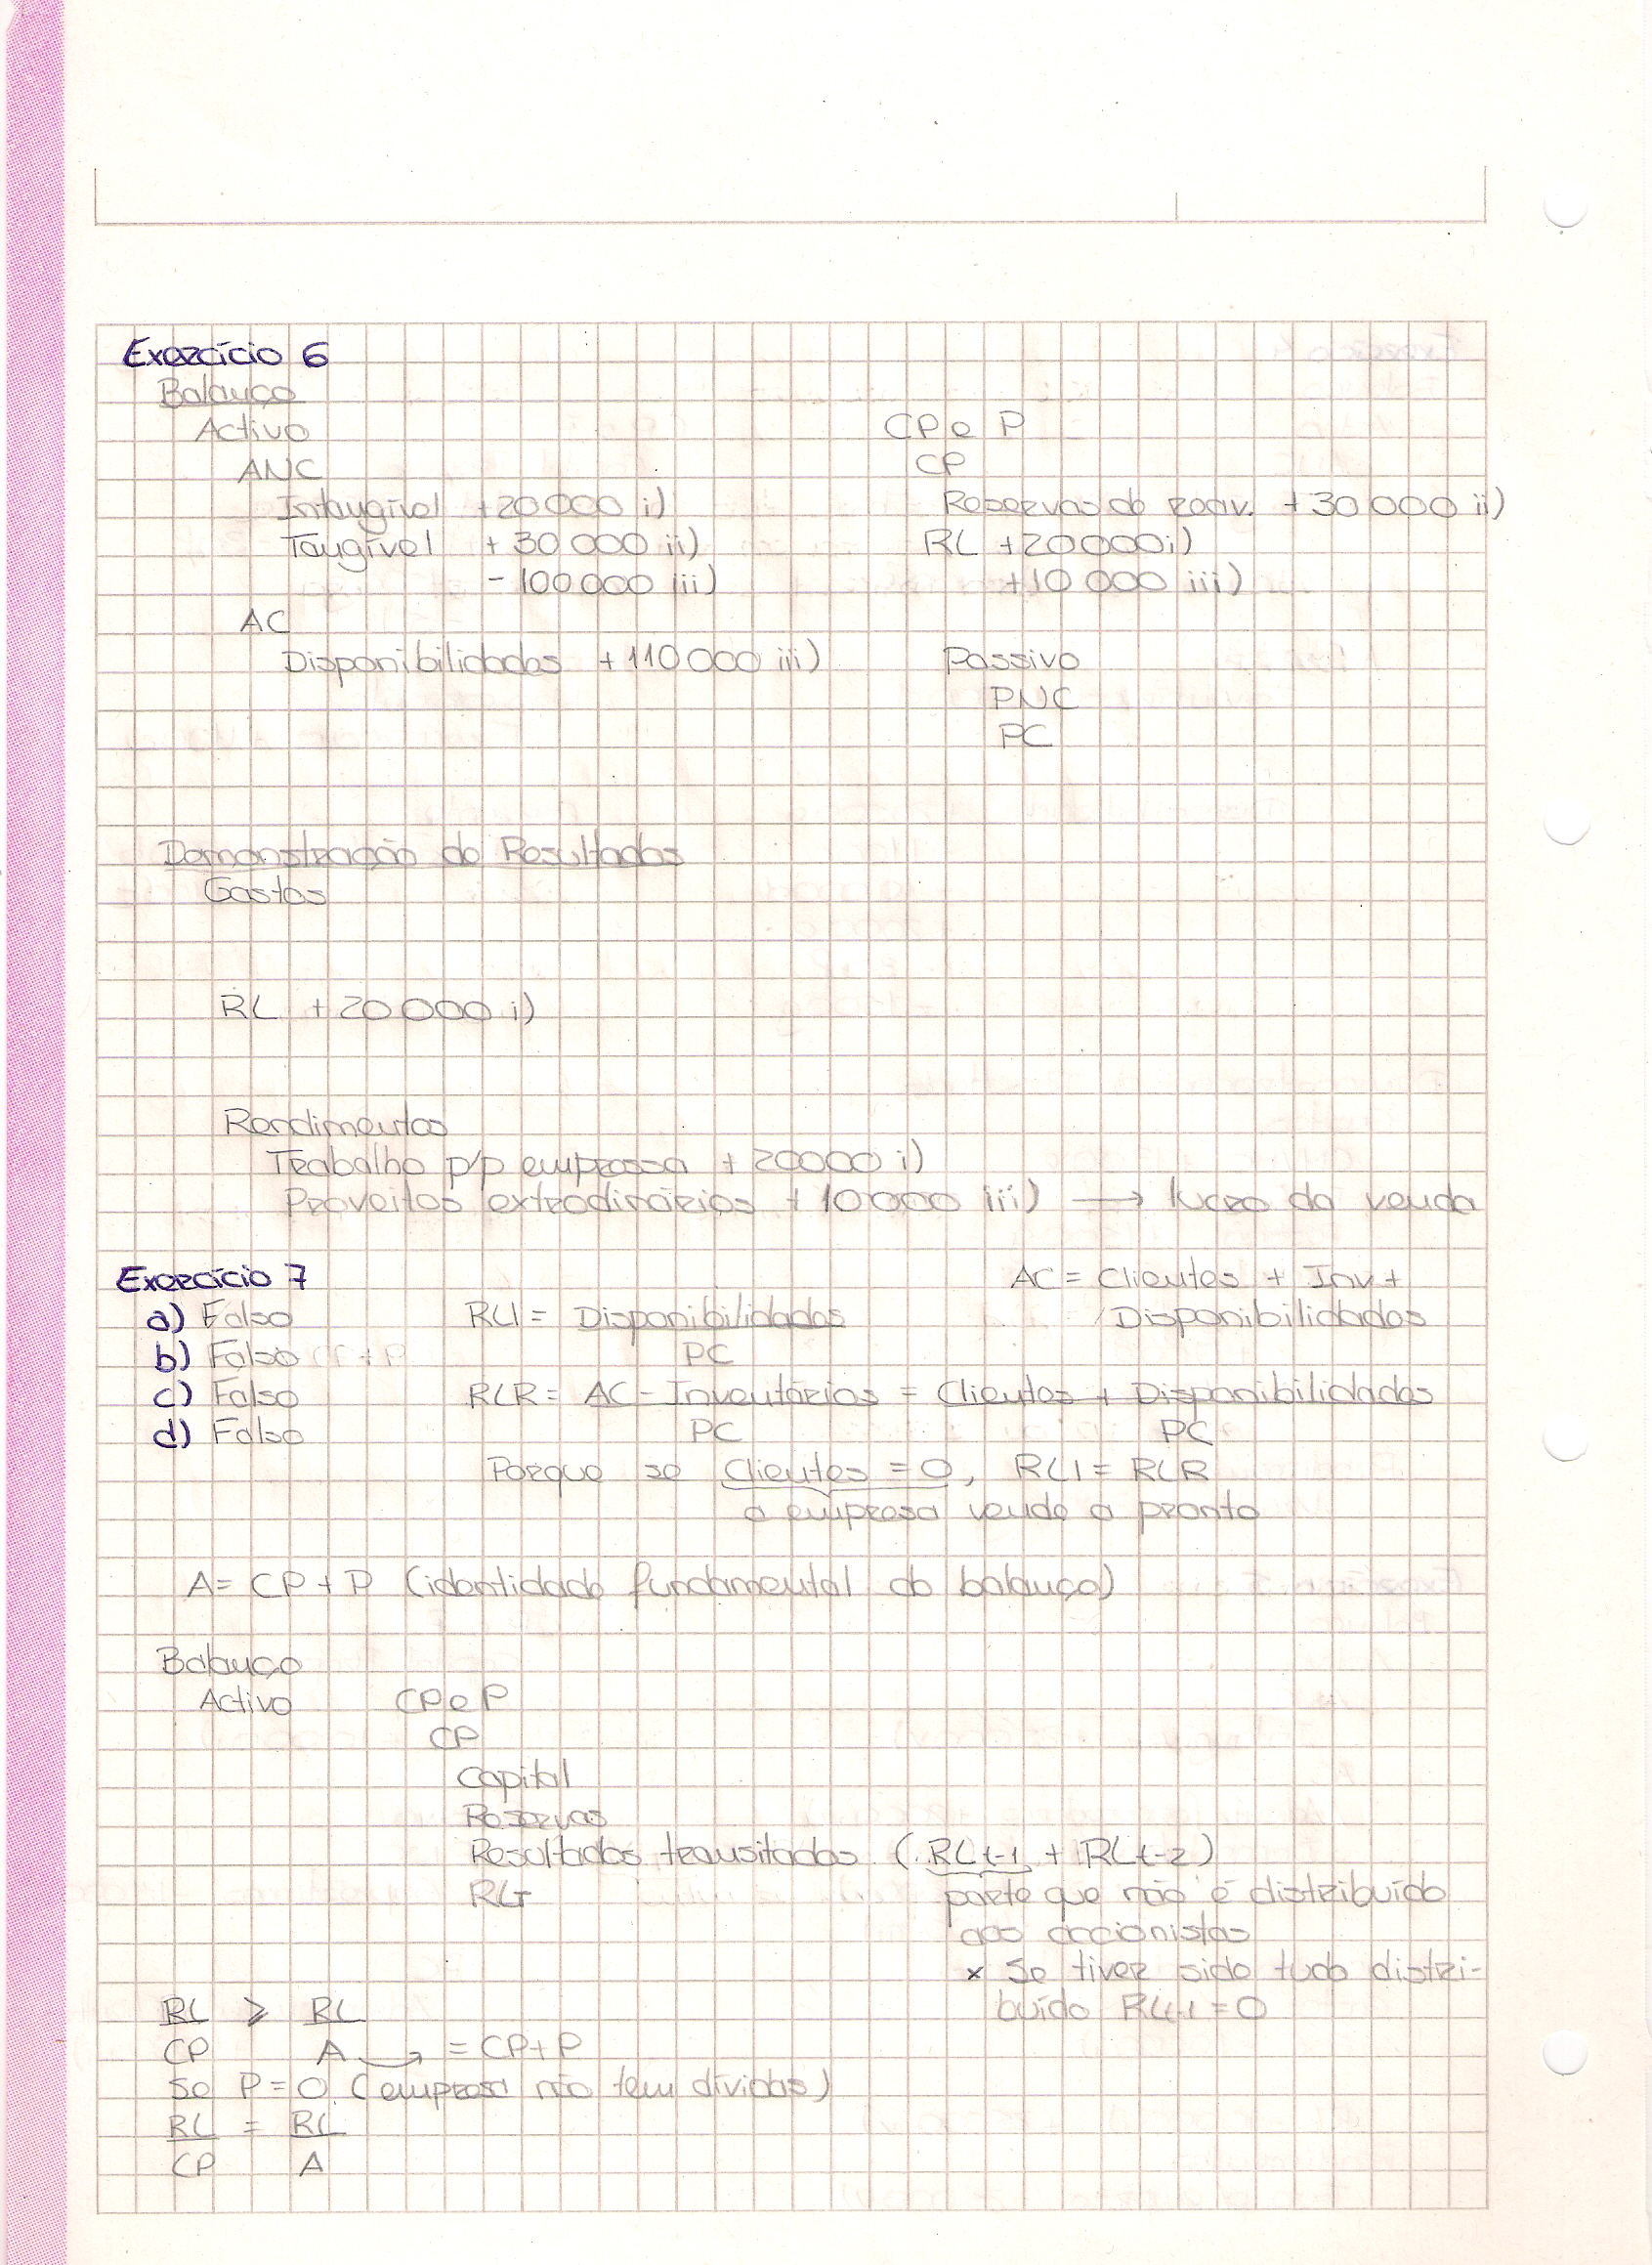 Exercício 6
Balanço
Activo CP e P
ANC CP
Intangível +20 000 i) Reservas de reav. +30 000 ii)
Tangível +30 000 ii) RL +20 000 i)
-100 000 iii) +10 000 iii)
AC
Disponibilidades +110 000 iii) Passivo
PNC
PC
Demonstração de Resultados
Gastos
RL +20 000 i)
Rendimentos
Trabalho p/p empressa +20000 i)
Proveitos extrodinários +10 000 iii) → lucro da venda
Exercício 7 AC = Clientes + Inv +
a) Falso RLI = Disponibilidades Disponibilidades
b) Falso PC
c) Falso RLR = AC - Inventários = Clientes + Disponibilidades
d) Falso PC PC
Porque se Clientes = 0, RLI = RLR
a empresa vende a pronto
A = CP + P (identidade fundamental do balanço)
Balanço
Activo CP e P
CP
Capital
Reservas
Resultados transitados (RLt-1 + RLt-2)
RLt parte que não é distribuído
aos accionistas
x Se tiver sido tudo distri-
RL ⩾ RL buído RLt-1 = 0
CP A → = CP+P
Se P = 0 (empresa não tem dívidas)
RL = RL
CP A